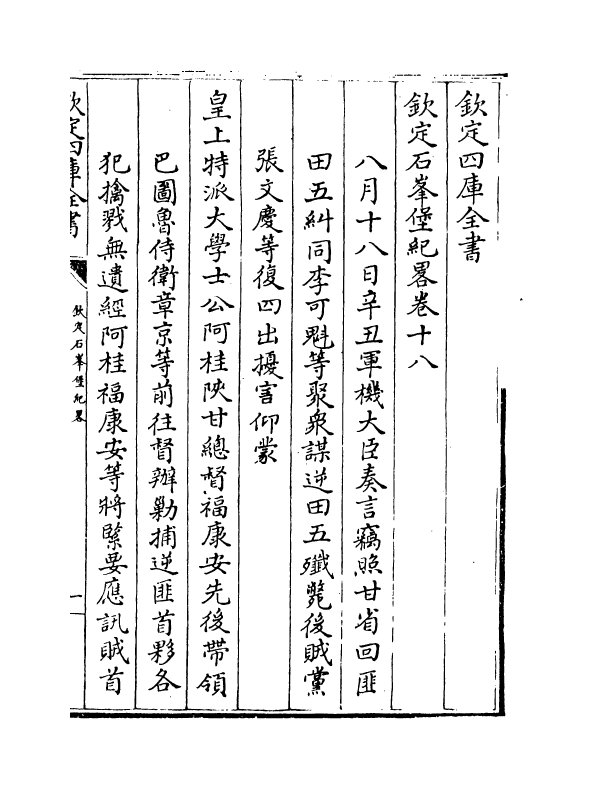 欽定四庫全書
欽定石峯堡紀畧卷十八
八月十八日辛丑軍機大臣奏言竊照甘省回匪
田五糾同李可魁等聚衆謀逆田五殲斃後賊黨
張文慶等復四出擾害仰蒙
皇上特派大學士公阿桂陜甘總督福康安先後帶領
巴圖魯侍衛章京等前往督辦勦捕逆匪首夥各
犯擒戮無遺經阿桂福康安等將緊要應訊賊首
欽定四庫全書
欽定石峯堡紀畧
一